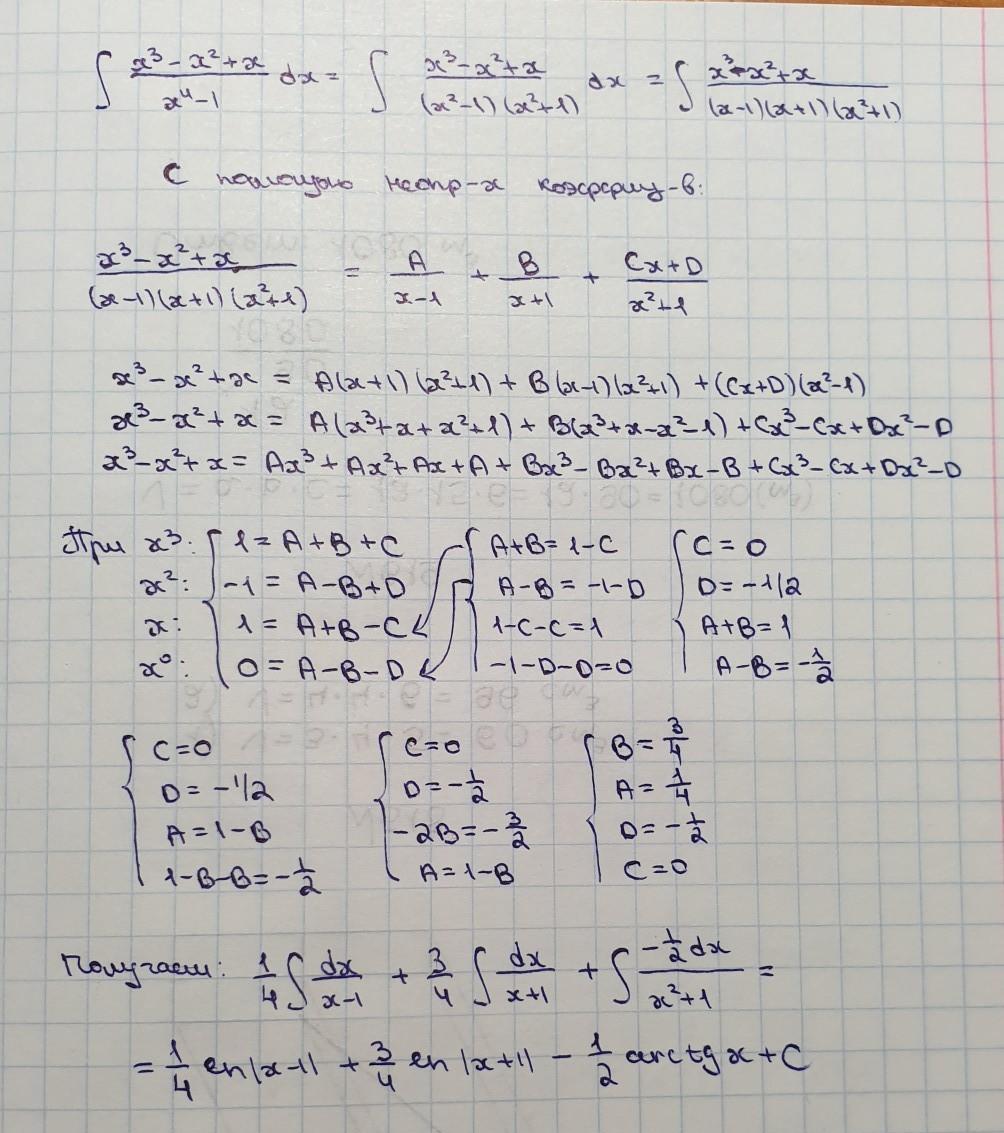 ∫ (x³ − x² + x)/(x⁴ − 1) dx = ∫ (x³ − x² + x)/((x² − 1)(x² + 1)) dx = ∫ (x³ − x² + x)/((x − 1)(x + 1)(x² + 1))
С помощью неопр-х коэффиц-в:
(x³ − x² + x)/((x − 1)(x + 1)(x² + 1)) = A/(x − 1) + B/(x + 1) + (Cx + D)/(x² + 1)
x³ − x² + x = A(x + 1)(x² + 1) + B(x − 1)(x² + 1) + (Cx + D)(x² − 1)
x³ − x² + x = A(x³ + x + x² + 1) + B(x³ + x − x² − 1) + Cx³ − Cx + Dx² − D
x³ − x² + x = Ax³ + Ax² + Ax + A + Bx³ − Bx² + Bx − B + Cx³ − Cx + Dx² − D
При x³: { 1 = A + B + C { A + B = 1 − C { C = 0
x²: −1 = A − B + D A − B = −1 − D D = −1/2
x: 1 = A + B − C 1 − C − C = 1 A + B = 1
x⁰: 0 = A − B − D −1 − D − D = 0 A − B = −1/2
{ C = 0 { C = 0 { B = 3/4
D = −1/2 D = −1/2 A = 1/4
A = 1 − B −2B = −3/2 D = −1/2
1 − B − B = −1/2 A = 1 − B C = 0
Получаем: 1/4 ∫ dx/(x − 1) + 3/4 ∫ dx/(x + 1) + ∫ (−1/2 dx)/(x² + 1) =
= 1/4 ln|x − 1| + 3/4 ln|x + 1| − 1/2 arctg x + C